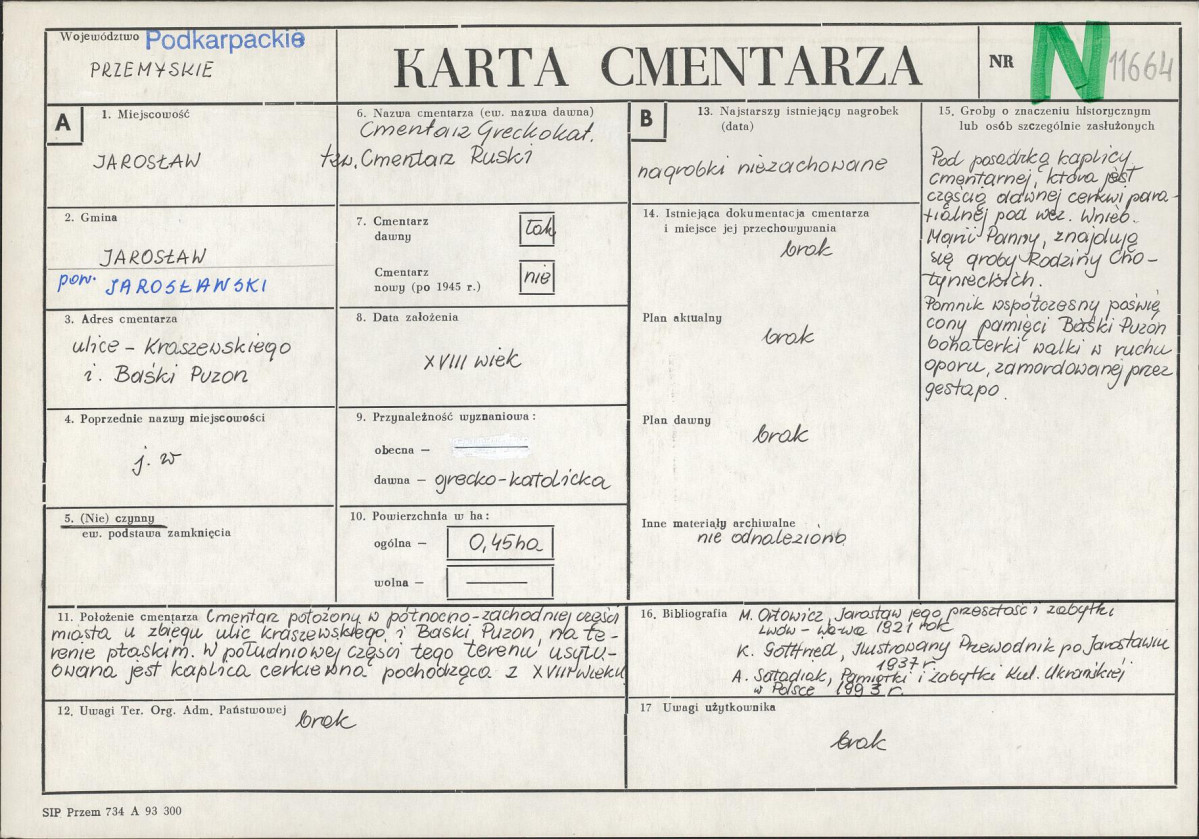 Województwo Podkarpackie
PRZEMYSKIE
KARTA CMENTARZA
NR N 11664
A
1. Miejscowość
JAROSŁAW
2. Gmina
JAROSŁAW
pow. JAROSŁAWSKI
3. Adres cmentarza
ulice – Kraszewskiego
i. Baśki Puzon
4. Poprzednie nazwy miejscowości
j. w
5. (Nie) czynny
ew. podstawa zamknięcia
6. Nazwa cmentarza (ew. nazwa dawna)
Cmentarz Greckokat.
tzw. Cmentarz Ruski
7. Cmentarz
dawny
tak
Cmentarz
nowy (po 1945 r.)
nie
8. Data założenia
XVIII wiek
9. Przynależność wyznaniowa:
obecna –
dawna – grecko-katolicka
10. Powierzchnia w ha:
ogólna – 0,45ha
wolna –
B
13. Najstarszy istniejący nagrobek
(data)
nagrobki niezachowane
14. Istniejąca dokumentacja cmentarza
i miejsce jej przechowywania
brak
Plan aktualny
brak
Plan dawny
brak
Inne materiały archiwalne
nie odnaleziono
15. Groby o znaczeniu historycznym
lub osób szczególnie zasłużonych
Pod posadzką kaplicy
cmentarnej, która jest
częścią dawnej cerkwi para-
fialnej pod wez. Wnieb.
Marii Panny, znajdują
się groby Rodziny Cho-
tynieckich.
Pomnik współczesny poświę
cony pamięci Baśki Puzon
bohaterki walki w ruchu
oporu, zamordowanej przez
gestapo.
11. Położenie cmentarza Cmentarz położony w północno-zachodniej części
miasta u zbiegu ulic Kraszewskiego i Baśki Puzon, na te-
renie płaskim. W południowej części tego terenu usytu-
owana jest kaplica cerkiewna pochodząca z XVIII wieku
12. Uwagi Ter. Org. Adm. Państwowej brak
16. Bibliografia M. Orłowicz, Jarosław jego przeszłość i zabytki
Lwów – W-wa 1921 rok
K. Gottfried, Ilustrowany Przewodnik po Jarosławiu
1937 r.
A. Saładiak, Pamiątki i zabytki Kul. Ukraińskiej
w Polsce 1993 r.
17 Uwagi użytkownika
brak
SIP Przem 734 A 93 300